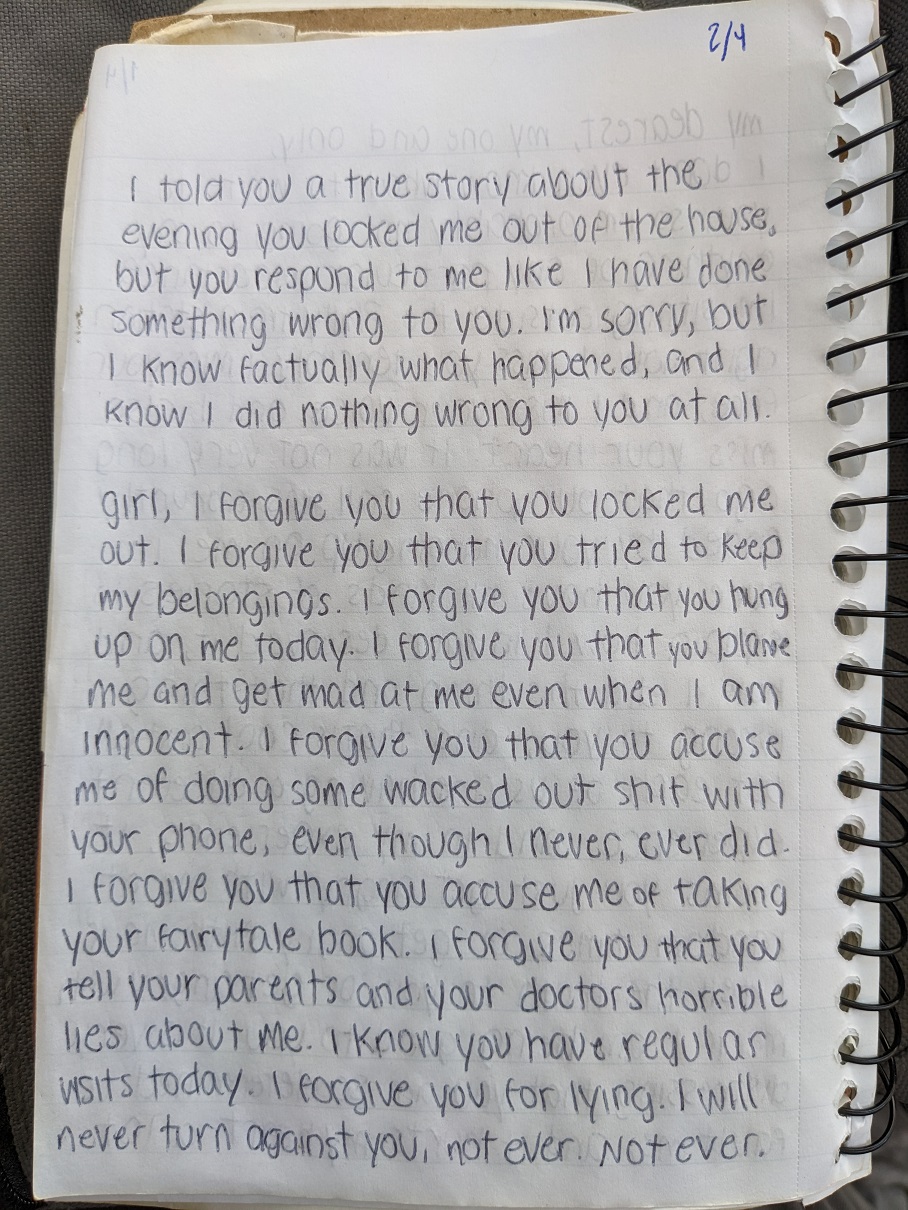 2/4
I told you a true story about the
evening you locked me out of the house,
but you respond to me like I have done
something wrong to you. I'm sorry, but
I know factually what happened, and I
know I did nothing wrong to you at all.
girl, I forgive you that you locked me
out. I forgive you that you tried to keep
my belongings. I forgive you that you hung
up on me today. I forgive you that you blame
me and get mad at me even when I am
innocent. I forgive you that you accuse
me of doing some wacked out shit with
your phone, even though I never, ever did.
I forgive you that you accuse me of taking
your fairytale book. I forgive you that you
tell your parents and your doctors horrible
lies about me. I know you have regular
visits today. I forgive you for lying. I will
never turn against you, not ever. Not ever.